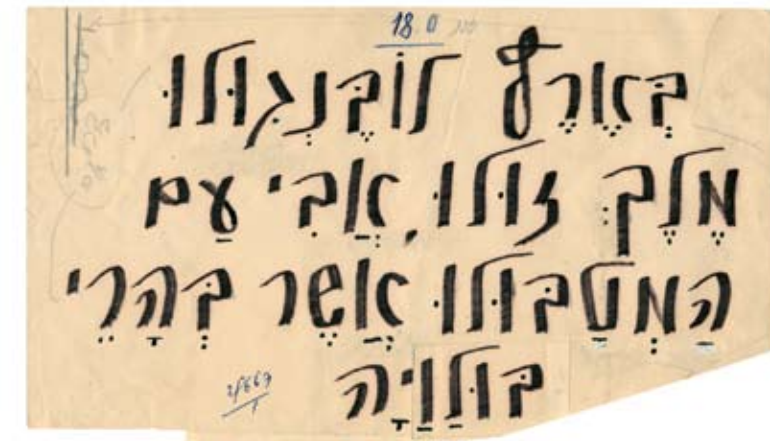 18 0
בְּאֶרֶץ לוֹבֶּנְגּוּלוּ
מֶלֶךְ זוּלוּ, אֲבִי עַם
הַמְּטַבּוּלוּ אֲשֶׁר בְּהָרֵי
בּוּלַוָיָה